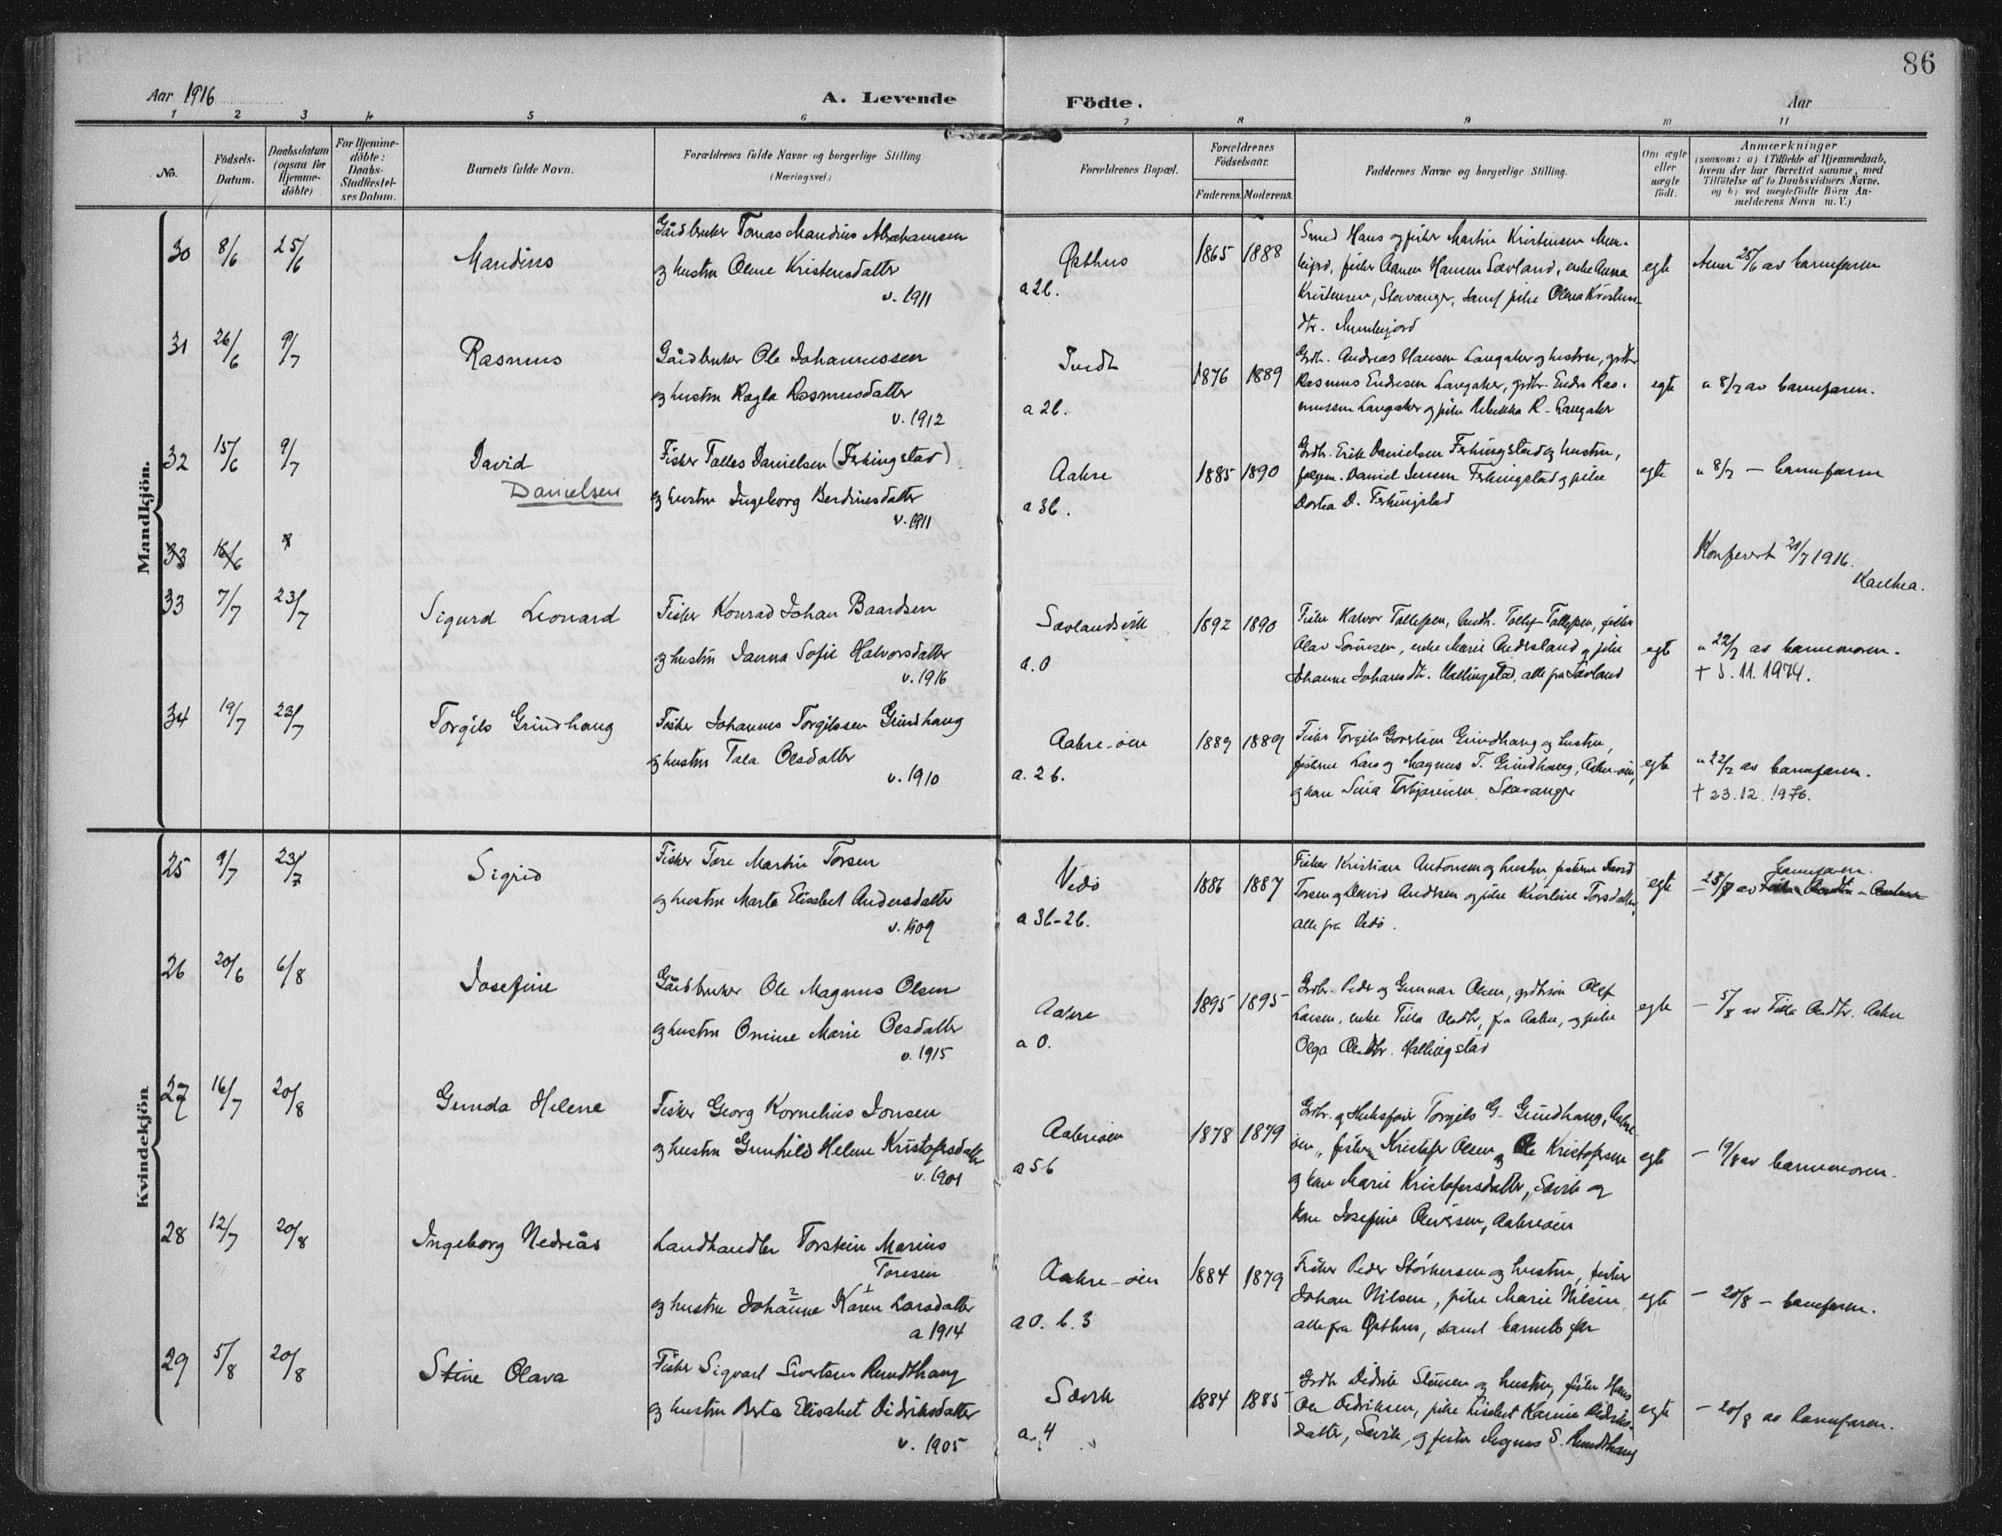 86
Aar 1916
A. Levende
Födte.
Aar
1 2 3 4 5 6 7 8 9 10 11
No.
Födsels-Datum.
Daabsdatum (ogsaa for Hjemme-döbte)
For Hjemme-döbte: Daabs-Stadfæstel-ses Datum.
Barnets fulde Navn.
Forældrenes fulde Navne og borgerlige Stilling (Næringsvei.)
Forældrenes Bopæl.
Forældrenes Födselsaar.
Faderens. Moderens.
Faddernes Navne og borgerlige Stilling.
Om ægte eller uægte födt.
Anmærkninger
(saasom: a) i Tilfælde af Hjemmedaab,
hvem der har forrettet samme, med
Tilföielse af to Daabsvidners Navne,
og b) ved uægtefödte Börn An-
melderens Navn m. V.)
Mandkjön.
30 8/6 25/6 Mandius
Gårdbruker Tomas Mandius Abrahamsen
og hustru Oline Kristensdatter
v. 1911
Østhus
a 2b.
1865 1888
Smed Hans og fisker Martin Kristensen Mun-
Kristensen, Stavanger, samt pike Olena Kristens-
dtr. Munkejord
egte
25/6 av barnefaren
31 26/6 9/7 Rasmus
Gårdbruker Ole Johannessen
og hustru Ragla Rasmusdatter
v. 1912
Tvedt
a 2b.
1876 1889
Grdbr. Andreas Hansen Langaker og hustru, grdbr
Rasmus Endresen Langaker, grdbr. Endre Ras-
mussen Langaker og pike Rebekka R. Langaker
egte
" 8/7 av barnefaren.
32 15/6 9/7 David
Danielsen
Fisker Tolles Danielsen (Ferkingstad)
og hustru Ingeborg Berdinesdatter
v. 1911
Aakre
a 3b.
1885 1890
Grdbr. Erik Danielsen Ferkingstad og hustru,
Daniel Jensen Ferkingstad og pike
Dortea D. Ferkingstad
egte
" 8/7 — barnefaren
33 18/6
Konferert 21/7 1916.
33 7/7 23/7 Sigurd Leonard
Fisker Konrad Johan Baardsen
og hustru Janna Sofie Halvorsdatter
v. 1916
Sævlandsvik
a. 0
1892 1890
Fisker Halvor Tollefsen, Tollef Tollefsen, fisker
Olav Sörensen, enke Marie
Johanne Johansdtr. Hallingstad, alle fra Sævland
egte
" 22/7 av barnemoren.
† 5.11.1974.
34 19/7 23/7 Torgils Grindhaug
Fisker Johannes Torgilssen Grindhaug
og hustru Tala Olsdatter
v. 1910
Aakre-øen
a. 2 b.
1889 1889
Fisker Torgils Govertsen Grindhaug og hustru,
fiskerne Lars og Magnus T. Grindhaug, Aakre-øen,
og kone Sina Torbjørnsen, Stavanger
egte
" 22/7 av barnefaren.
† 23.12.1976.
Kvindekjön
25 9/7 23/7 Sigrid
Fisker Tore Martin Torsen
og hustru Marta Elisabet Andersdatter
v. 1909
Vedö
a 3b-2b.
1886 1887
Fisker Kristian Antonsen og hustru, fiskerne David
Torsen og David Andersen og pike Kristine Torsdatter,
alle fra Vedö.
egte
barnefaren.
26 20/6 6/8 Josefine
Gårdbruker Ole Magnus Olsen
og hustru Omine Marie Olsdatter
v. 1915
Aakre
a 0.
1895 1895
Grdbr. Peder og Gunnar Olsen, grdbrsön Olef
Larsen, enke Tilla Olsdtr, fra Aakre, og pike
Olga Olsdtr. Hallingstad
egte
— 5/8 av Tilla Olsdtr. Aakre
27 16/7 20/8 Gunda Helene
Fisker Georg Kornelius Jonsen
og hustru Gunhild Helene Kristofersdatter
v. 1901
Aakreøen
a 5 b
1878 1879
Torgils G. Grindhaug, Aakre-
øen, fisker Kristofer Olsen og Ole Kristofersen
og kone Marie Kristofersdatter, Sævik og
kone Josefine Olversen, Aakreøen
egte
— 19/8 av barnemoren.
28 12/7 20/8 Ingeborg Nedreås
Landhandler Torstein Marius
Toresen
og hustru Johanne Karen Larsdatter
a 1914
Aakre-øen
a 0. b. 3
1884 1879
Fisker Peder Störkersen og hustru, fisker
Johan Nilsen, pike Marie Nilsen
alle fra Østhus, samt barnets far
egte
— 20/8 — barnefaren.
29 5/8 20/8 Stine Olava
Fisker Sigvart Sivertsen Rundhaug
og hustru Berta Elisabet Didriksdatter
v. 1905
Sævik
a. 4
1884 1885
Grdbr Didrik Stensen og hustru, fisker Hans
Ole Didriksen, pike Lisabet Karine Didriks-
datter, Sævik, og fisker Magnus S. Rundhaug
egte
— 20/8 av barnefaren.